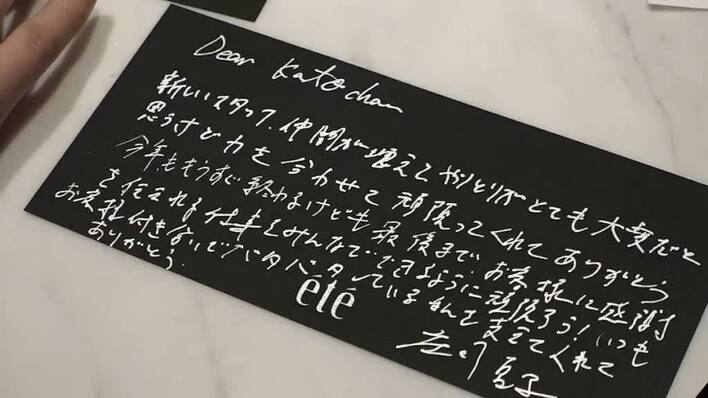 Dear Katochan
新しいスタッフ、仲間が増えてやりとりがとても大変だと
思うけど力を合わせて頑張ってくれてありがとう
今年ももうすぐ終わるけども最後まで、お客様に感謝
を伝えれる仕事をみんなでできるように頑張ろう!いつも
お客様付きないでバタバタしているなんて支えてくれて
ありがとう。
été
庄司夏子